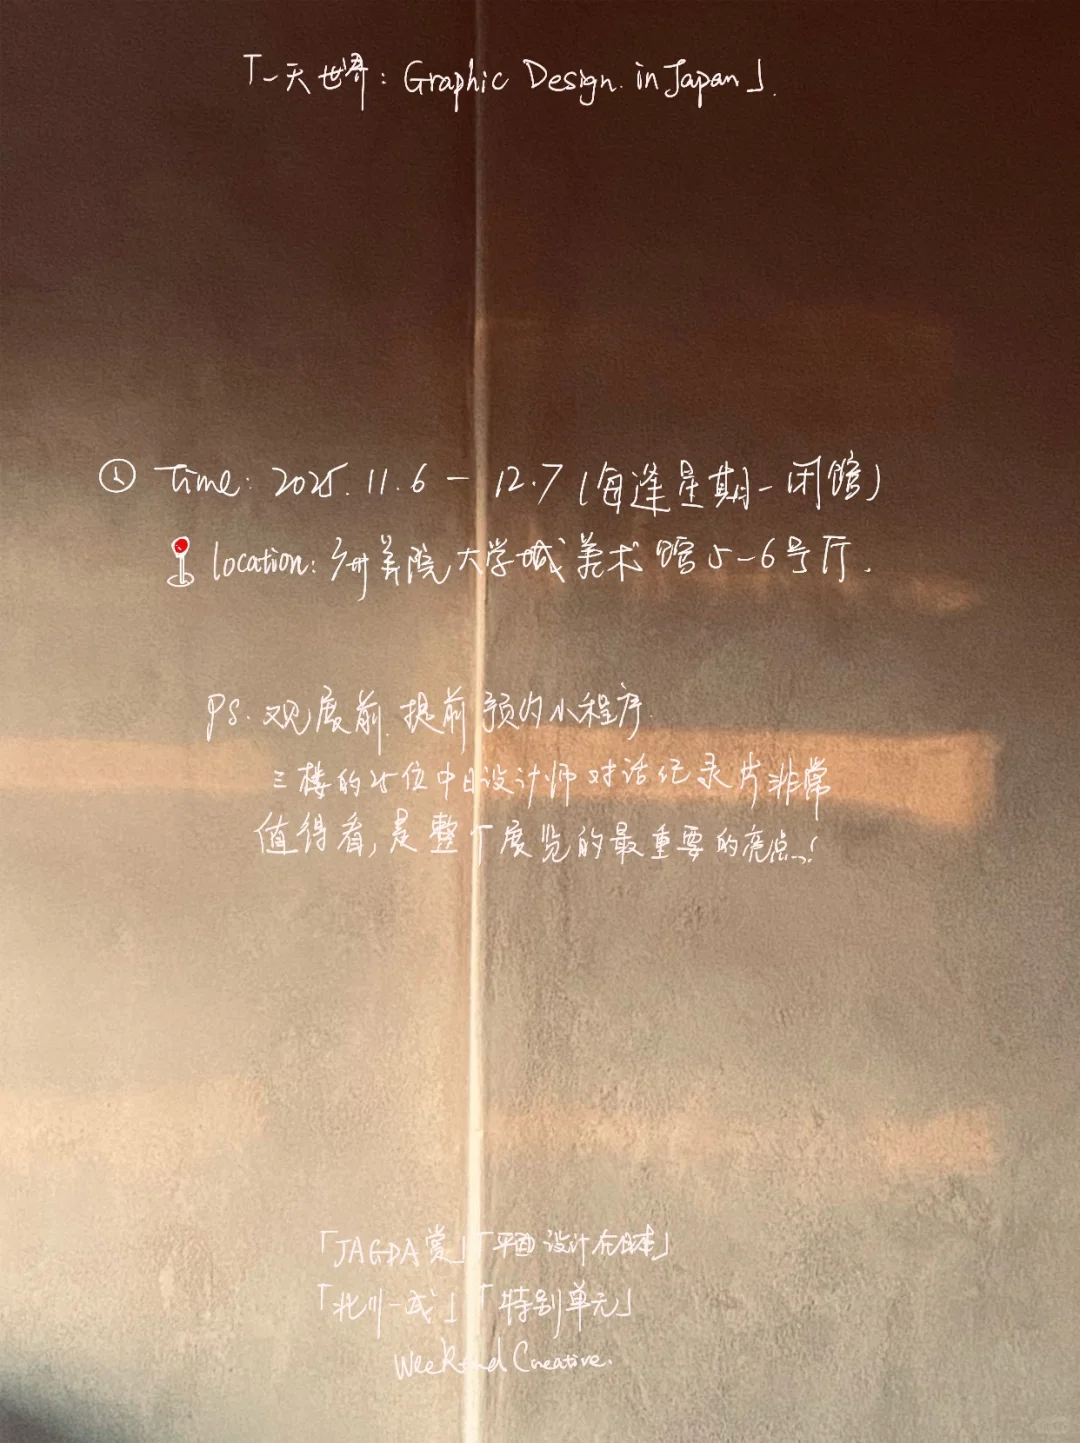 「一天世界：Graphic Design in Japan」.
Time: 2025.11.6 – 12.7 (每逢星期一闭馆)
location: 广州美院大学城美术馆5-6号厅.
PS. 观展前, 提前预约小程序.
三楼的25位中日设计师对话纪录片非常
值得看, 是整个展览的最重要的亮点..!
「JAGDA赏」「平面设计在日本」
「北川一成」「特别单元」
Weekend Creative.